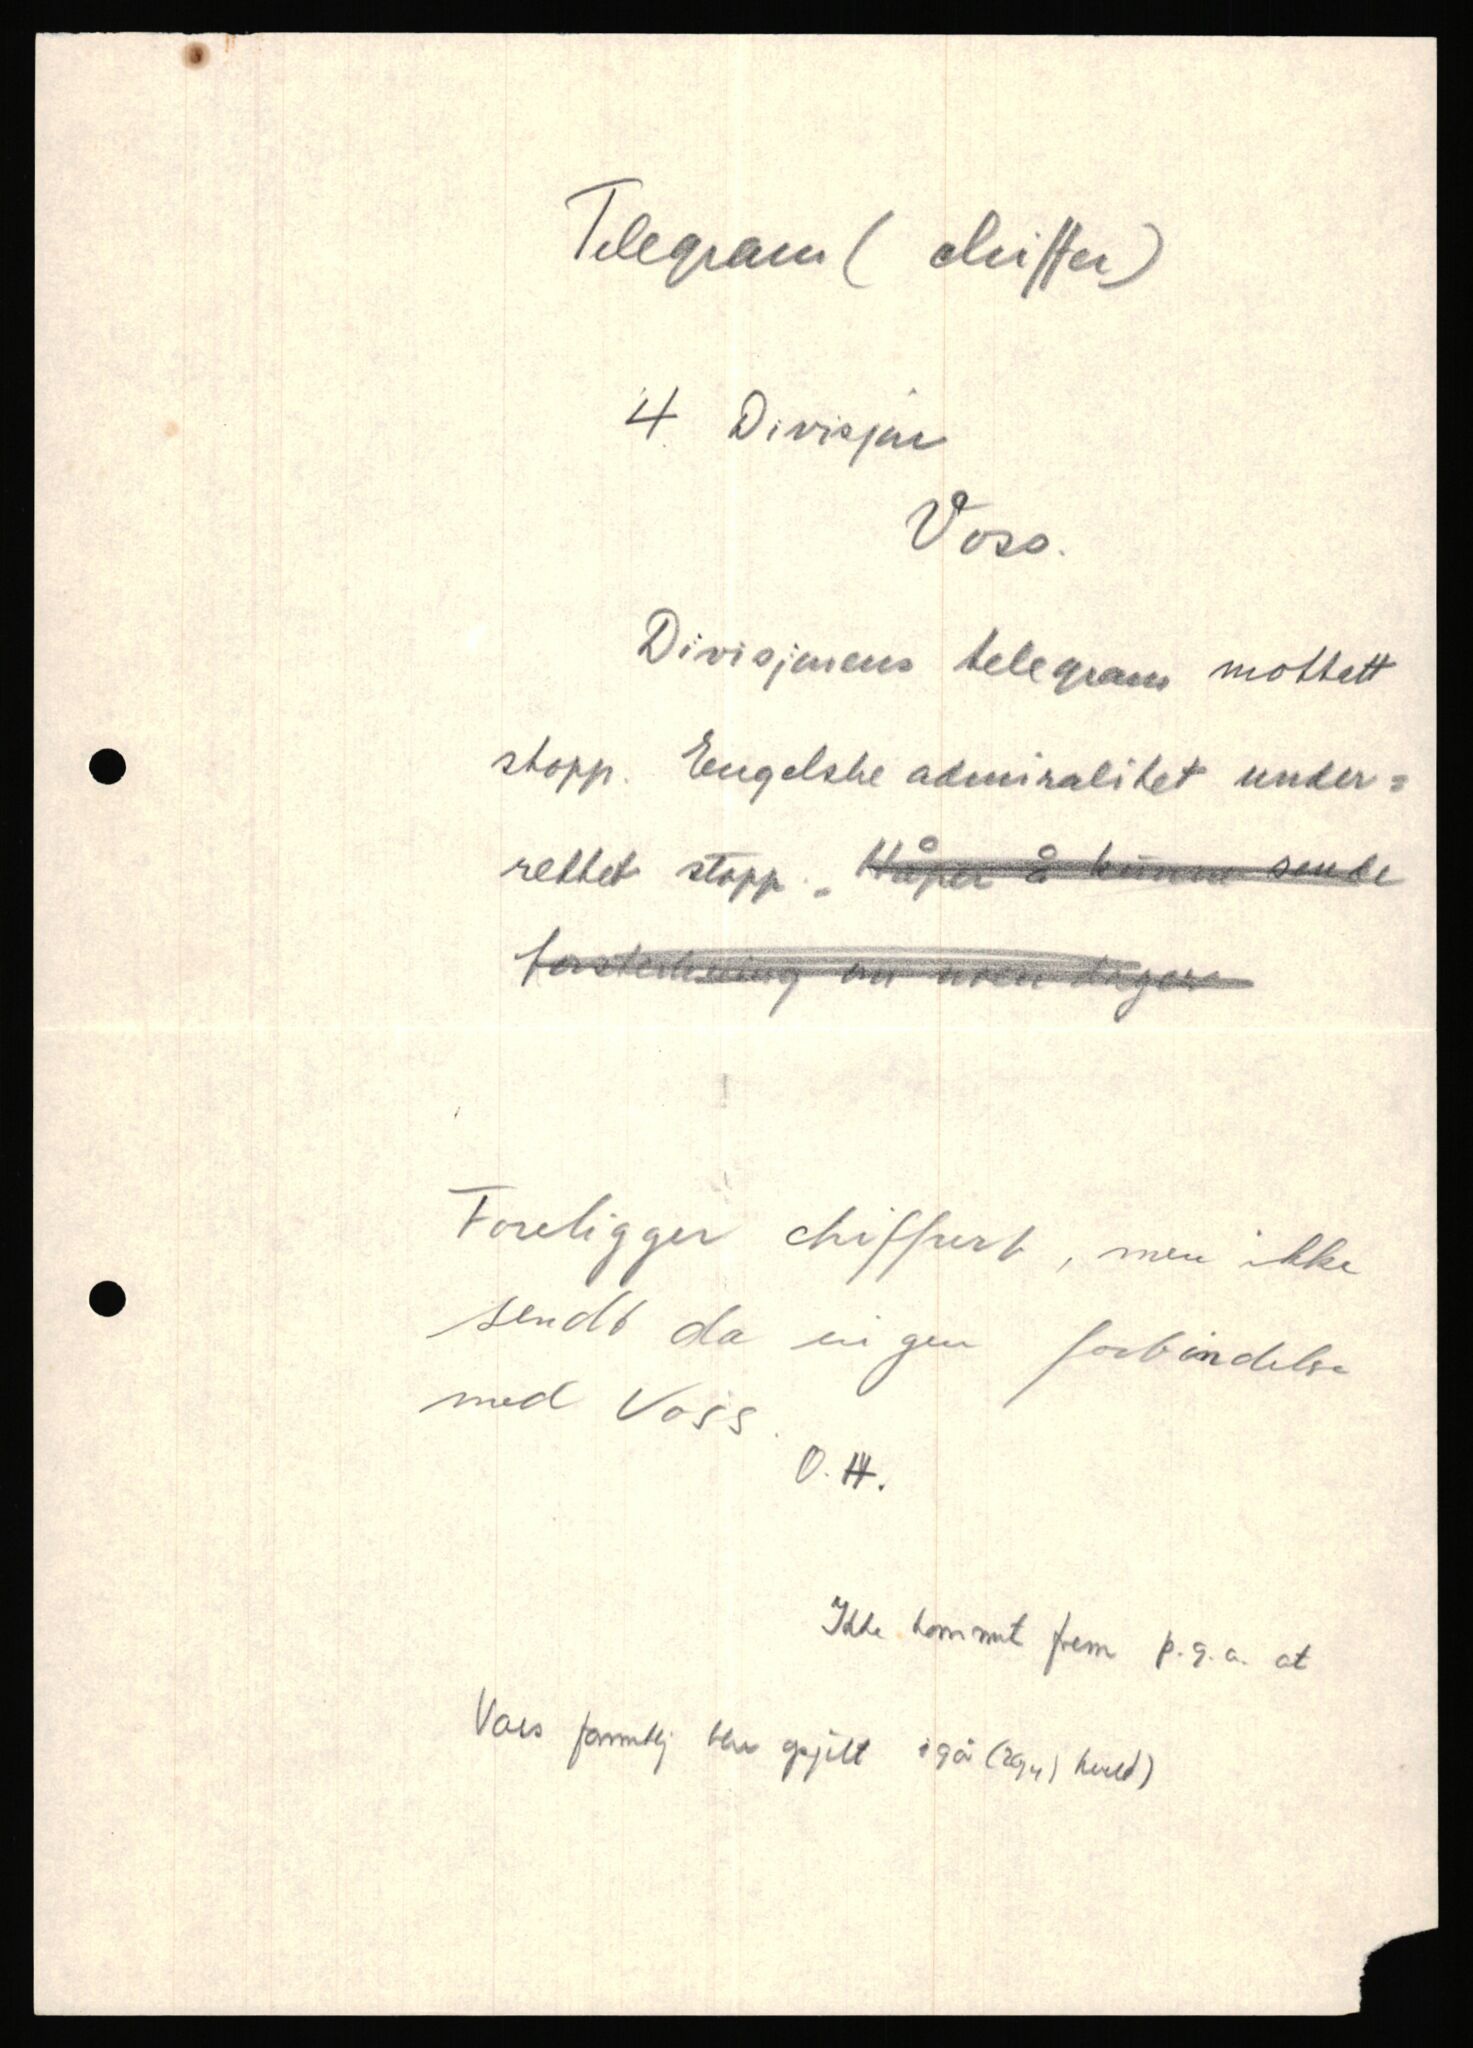 Telegram ( chiffer)
4. Divisjon
Voss.
Divisjonens telegram mottatt
stopp. Engelske admiralitet under=
rettet stopp. Håper å kunne sende
forsterkning om noen dager
Foreligger chiffrert, men ikke
sendt da ingen forbindelse
med Voss.
O.H.
Ikke kommet frem p.g.a. at
Voss ble igår (29/4) kveld)